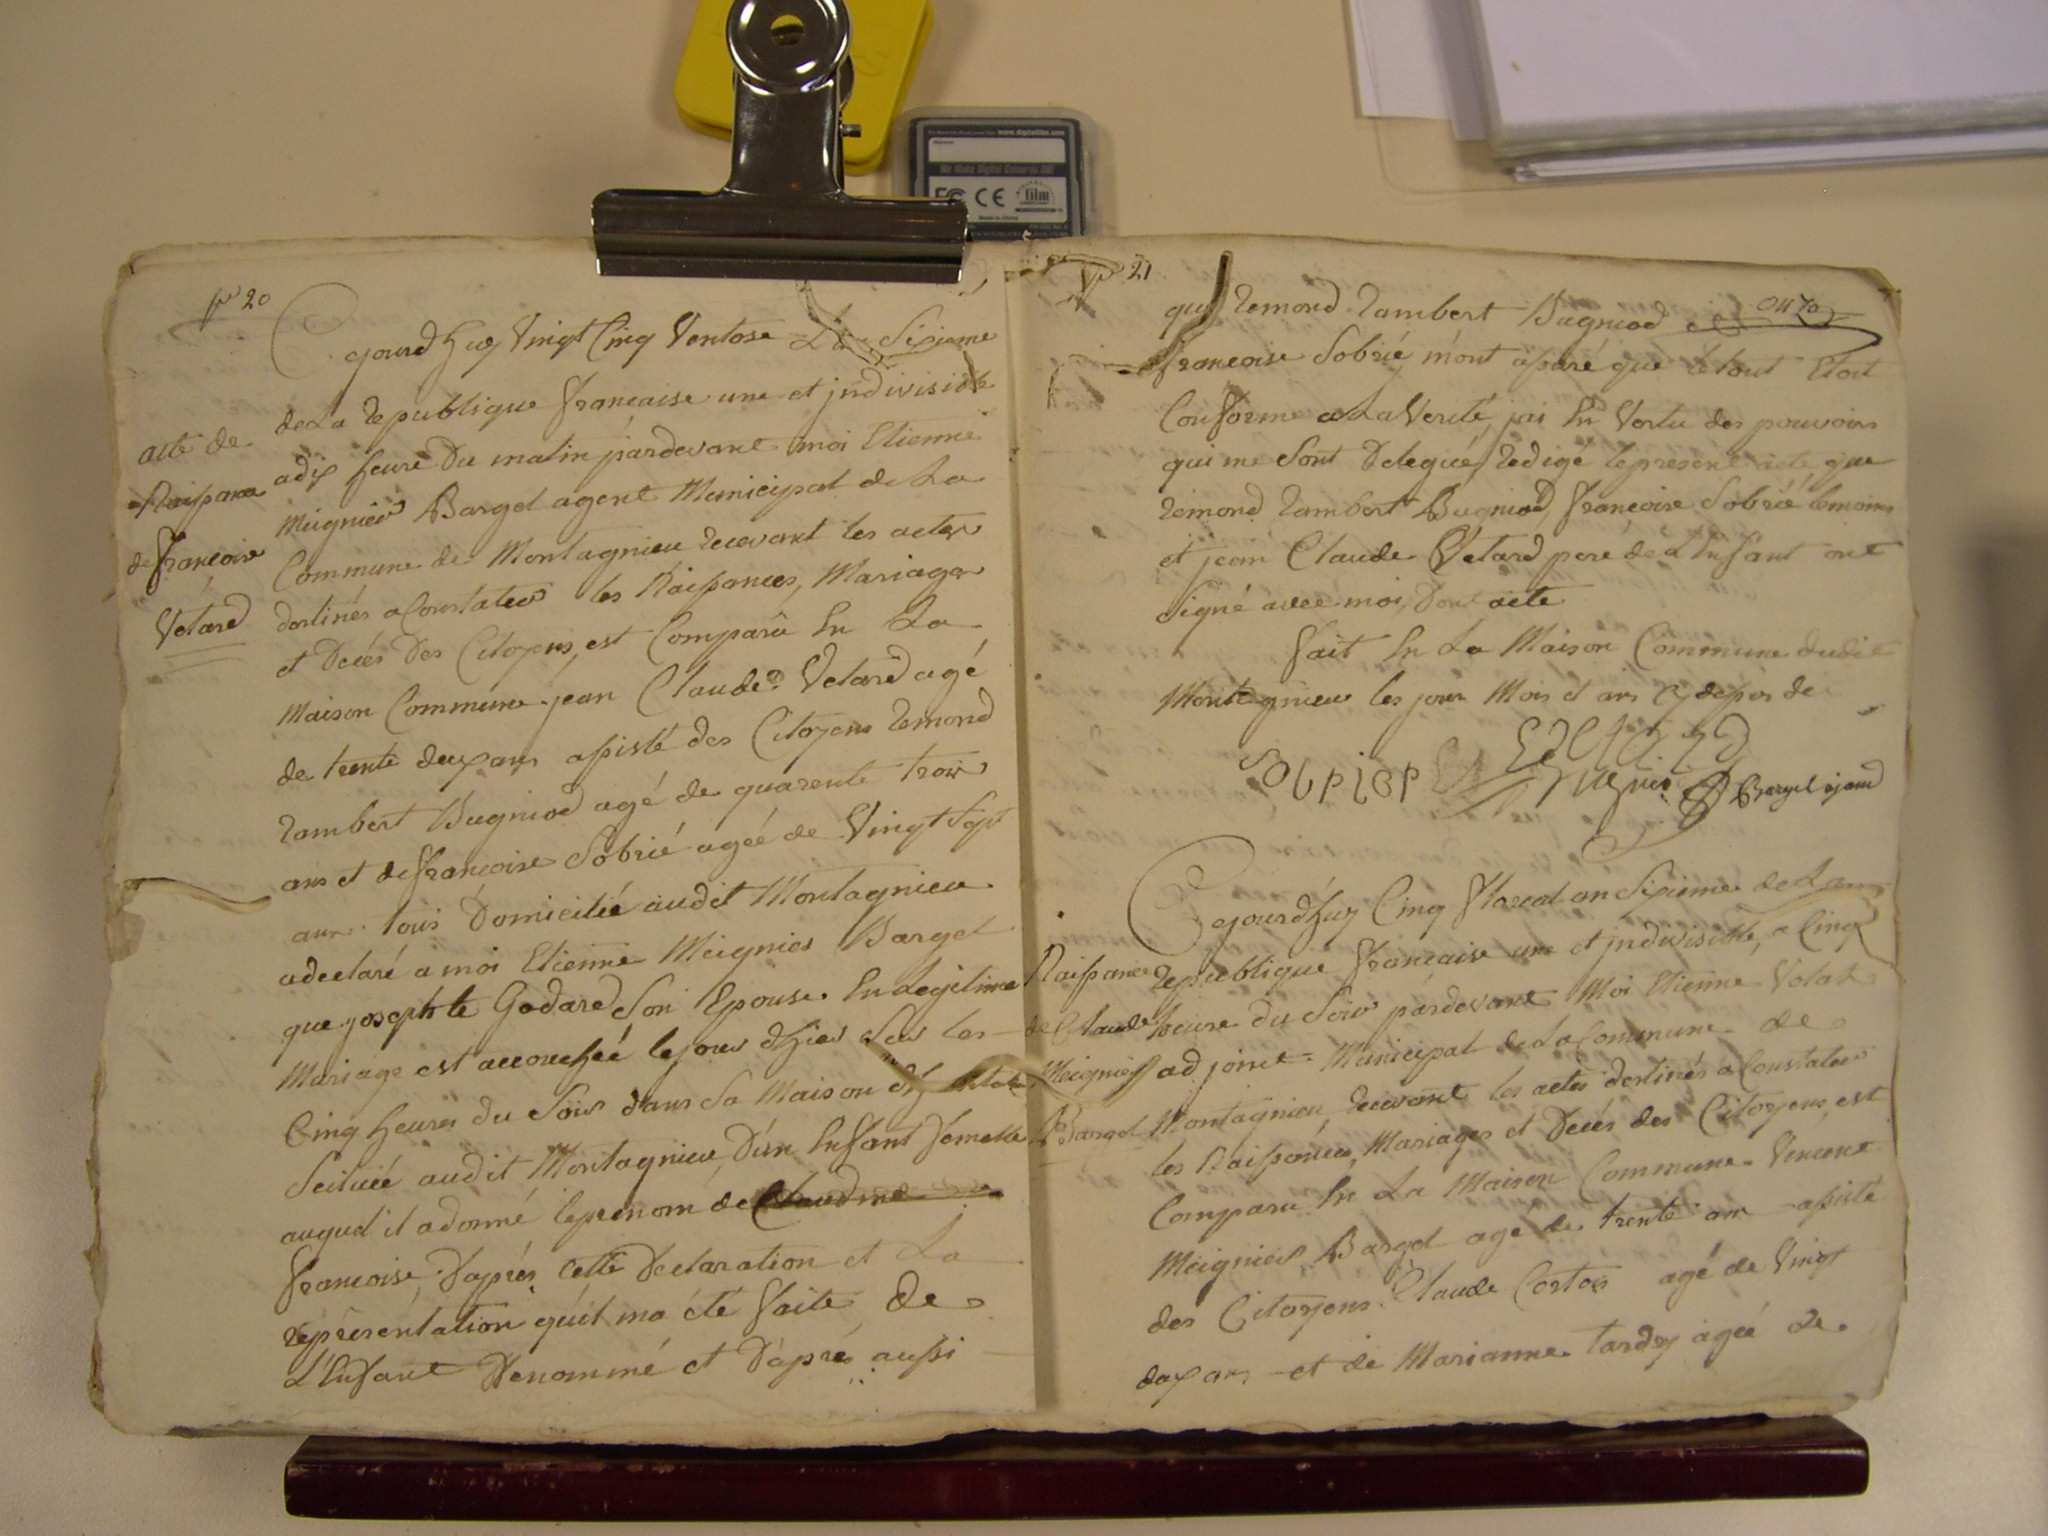 20
acte de
Naissance
de françoise
Vetard
Cejourdhuy Vingt Cinq Ventose L'an Sixieme
de La republique francaise une et jndivisible
a dix heure Du matin pardevant moi Etienne
Meignier Barget agent Municipal de La
Commune de Montagnieu recevant les actes
destinés a Constater les Naissances, Mariages
et Decés Des Citoyens, est Comparû En La
Maison Commune jean Claude Vetard agé
de trente deux ans assisté des Citoyens remond
rambert Bugniod agé de quarente trois
ans et de françoise Sobrié agée de Vingt Sept
ans tous Domicilié audit Montagnieu
a declaré a moi Etienne Meignier Barget
que josephte Godard Son Epouse En Legitime
Mariage est accouchée le jour d'hier Sur les
Cinq heures du Soir dans Sa Maison
Scituée audit Montagnieu, D'un Enfant femelle
auquel il a donné le prenom de Claudine
francoise, D'aprés cette Declaration et La
représentation qu'il ma été faite, de
L'Enfant Denommé et D'aprés aussi
21
que remond rambert Bugniod et
françoise Sobrié m'ont assuré que le tout Etoit
Conforme a La Verité, jai En Vertu des pouvoirs
qui me Sont Delegué, redigé le present acte que
remond rambert Bugniod, françoise Sobrié temoins
et jean Claude Vetard pere de L'Enfant ont
Signé avec moi, Dont acte
fait En La Maison Commune dudit
Montagnieu les jour Mois et ans Cy dessus
Barget
Naissance
de Claude
Meignier
Barget
Cejourdhuy Cinq floreal an Sixieme de La
republique francaise une et jndivisible, a Cinq
heure du Soir pardevant Moi Etienne Volat
adjoint Municipal de La Commune de
Montagnieu, recevant les actes destinés a Constater
les Naissances, Mariages et Decés des Citoyens, est
Comparu En La Maison Commune Vincent
Meignier Barget agé de trente ans assisté
des Citoyens Claude Cortois agé de Vingt
deux ans et de Marianne tardy agée de